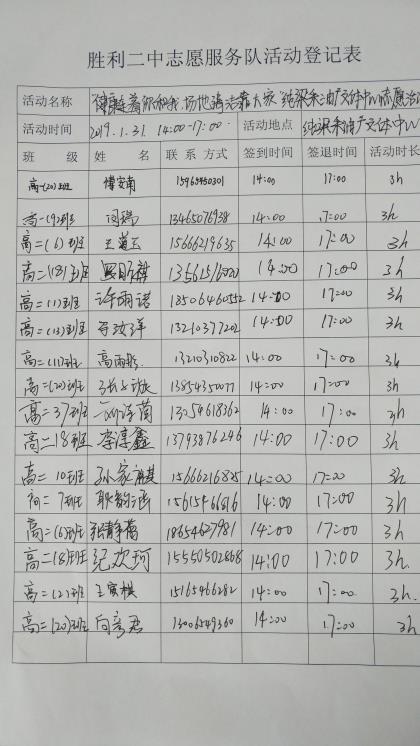 胜利二中志愿服务队活动登记表
活动名称 健康 着你和我 场地清志靠大家 纯梁采油厂文体中心志愿活
活动时间 2019.1.31 14:00-17:00 活动地点 纯梁采油厂文体中心
班 级 姓 名 联系方式 签到时间 签退时间 活动时长
高一(20)班 傅安南 15965450301 14:00 17:00 3h
高二(9)班 闫瑞 13465076938 14:00 17:00 3h
高二(6)班 15666219635 14:00 17:00 3h
高二(8)班 14:00 17:00 3h
高二(1)班 许雨诺 18506460552 14:00 17:00 3h
高二(13)班 13210377202 14:00 17:00 3h
高二(11)班 高雨彤 13210310822 14:00 17:00 3h
高二(20)班 13854350077 14:00 17:00 3h
高二37班 刘洋茵 13054618362 14:00 17:00 3h
高二18班 李淳鑫 13793876246 14:00 17:00 3h
高二10班 孙家麒 15666216825 14:00 17:00 3h
初二7班 耿韵涵 15615466616 14:00 17:00 3h
高二(6)班 张静菡 18654627981 14:00 17:00 3h
高二(8)班 纪欢珂 15550502868 14:00 17:00 3h.
高二(2)班 王寅祺 15165466282 14:00 17:00 3h.
高二(20)班 向彦君 13006549360 14:00 17:00 3h